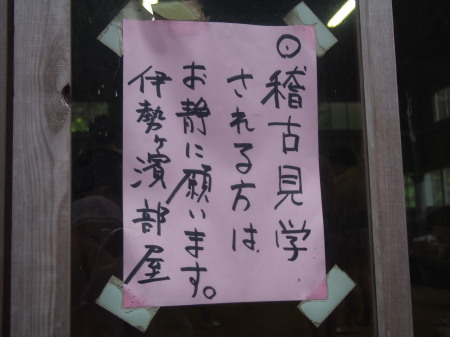 ◎稽古見学
される方は
お静に願います。
伊勢ケ濱部屋